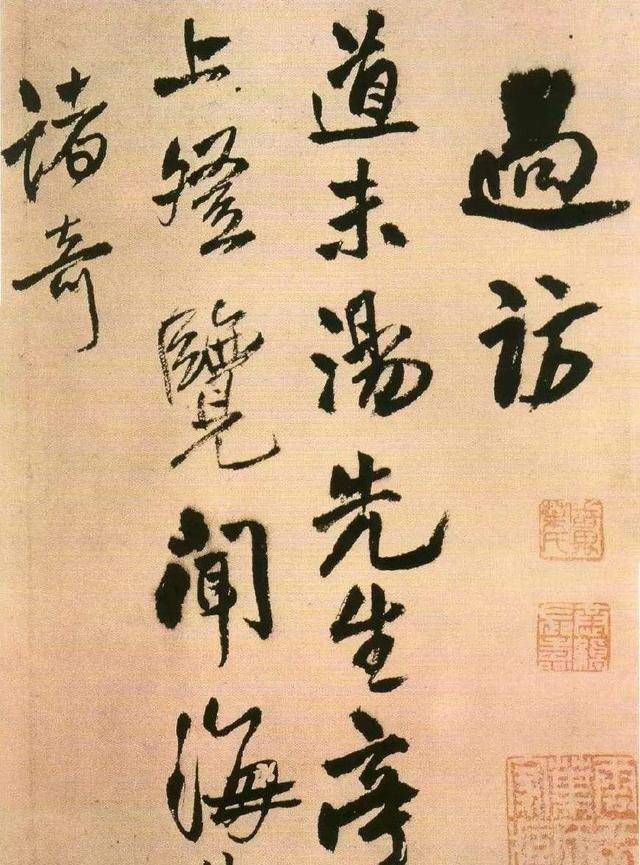 過訪
道未湯先生亭
上登覽聞海
諸奇